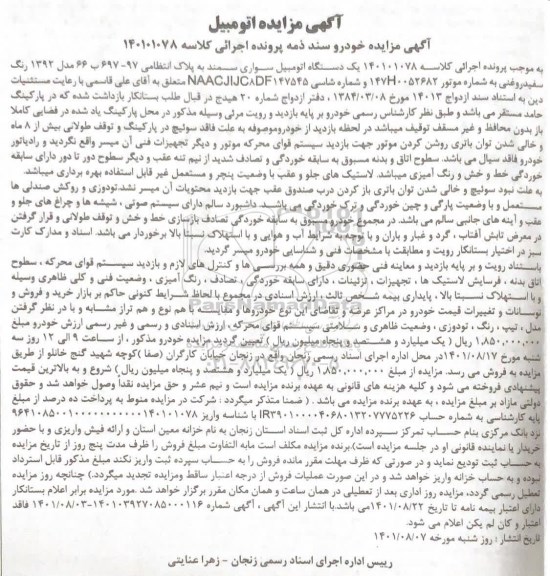 آگهی مزایده اتومبیل
آگهی مزایده خودرو سند ذمه پرونده اجرائی کلاسه ۱۴۰۱۰۱۰۷۸
به موجب پرونده اجرائی کلاسه ۱۴۰۱۰۱۰۷۸ یک دستگاه اتومبیل سواری سمند به پلاک انتظامی ۹۷-۶۹۷ ب ۶۶ مدل ۱۳۹۲ رنگ
سفیدروغنی به شماره موتور ۱۴۷H۰۰۵۲۶۸۲ و شماره شاسی NAACJ1JC۸DF۱۴۷۵۴۵ متعلق به آقای علی قاسمی با رعایت مستثنیات
دین به استناد سند ازدواج ۱۴۰۱۳ مورخ ۱۳۸۴/۰۳/۰۸ ، دفتر ازدواج شماره ۲۰ هیدج در قبال طلب بستانکار بازداشت شده که در پارکینگ
حامد مستقر می باشد و طبق نظر کارشناس رسمی خودرو بر پایه بازدید و رویت مرئی وسیله مذکور در محل پارکینگ یاد شده در فضایی کاملا
باز بدون محافظ و غیر مسقف توقیف میباشد در لحظه بازدید از خودروموصوفه به علت فاقد سوئیچ در پارکینگ و توقف طولانی بیش از ۸ ماه
و خالی شدن توان باتری روشن کردن موتور جهت بازدید سیستم قوای محرکه موتور و دیگر تجهیزات فنی آن میسر واقع نگردید و رادیاتور
خودرو فاقد سیال می باشد. سطوح اتاق و بدنه مسبوق به سابقه خوردگی و تصادف شدید از نیم تنه عقب و دیگر سطوح دور تا دور دارای سابقه
خوردگی خط و خش و رنگ آمیزی میباشد. لاستیک های جلو و عقب با وضعیت پنچر و مستعمل غیر قابل استفاده بهره برداری میباشد.
به علت نبود سوئیچ و خالی شدن توان باتری باز کردن درب صندوق عقب جهت بازدید محتویات آن میسر نشد.تودوزی و روکش صندلی ها
مستعمل و با وضعیت پارگی و چین خوردگی و ترک خوردگی می باشد داشبورد سالم دارای سیستم صوتی ، شیشه ها و چراغ های جلو و
عقب و آینه های جانبی سالم می باشد. در مجموع خودرو مسبوق به سابقه خوردگی تصادف بازسازی خط و خش و توقف طولانی و قرار گرفتن
در معرض تابش آفتاب ، گرد و غبار و باران و با توجه به شرایط آب و هوایی و با استهلاک نسبتا بالا برخوردار می باشد. اسناد و مدارک کارت
سبز در اختیار بستانکار رویت و مطابقت با مشخصات فنی و شناسایی خودرو میسر گردید.
باستناد رویت و بر پایه بازدید و معاینه فنی حضوری دقیق و همه بررسی ها و کنترل های لازم و بازدید سیستم قوای محرکه ، سطوح
اتاق بدنه ، فرسایش لاستیک ها ، تجهیزات ، تزئینات ، دارای سابقه خوردگی ، تصادف ، رنگ آمیزی ، وضعیت فنی و کلی ظاهری وسیله
و با استهلاک نسبتا بالا ، پایداری بیمه شخص ثالث ، ارزش اسنادی در مجموع با لحاظ شرایط کنونی حاکم بر بازار خرید و فروش و
نوسانات و تغییرات قیمت خودرو در مراکز عرضه و تقاضای این نوع خودروها و مقایسه با هم نوع و هم تراز مشابه و با در نظر گرفتن
مدل ، تیپ ، رنگ ، تودوزی ، وضعیت ظاهری و سلامتی سیستم قوای محرکه، ارزش اسنادی و رسمی و غیر رسمی ارزش خودرو مبلغ
۱,۸۵۰,۰۰۰,۰۰۰ ریال ( یک میلیارد و هشتصد و پنجاه میلیون ریال ) تعیین گردید مزایده خودرو مذکور ، از ساعت ۹ الی ۱۲ روز سه
شنبه مورخ ۱۴۰۱/۰۸/۱۷در محل اداره اجرای اسناد رسمی زنجان واقع در زنجان خیابان کارگران (صفا)کوچه شهید گنج خانلو از طریق
مزایده به فروش می رسد. مزایده از مبلغ ۱,۸۵۰,۰۰۰,۰۰۰ ریال ( یک میلیارد و هشتصد و پنجاه میلیون ریال) شروع و به بالاترین قیمت
پیشنهادی فروخته می شود و کلیه هزینه های قانونی به عهده برنده مزایده است و نیم عشر و حق مزایده نقداً وصول خواهد شد و حقوق
دولتی مازاد بر مبلغ مزایده ، به عهده برنده مزایده می باشد . ( ضمنا متذکر میگردد : شرکت در مزایده منوط به پرداخت ده درصد از مبلغ
پایه کارشناسی به شماره حساب IR۳۹۰۱۰۰۰۰۴۰۶۸۰۱۳۲۰۷۷۷۵۲۲۶ با شناسه واریز
نزد بانک مرکزی بنام حساب تمرکز سپرده اداره کل ثبت اسناد استان زنجان به نام خزانه معین استان و ارائه فیش واریزی و با حضور
خریدار یا نماینده قانونی او در جلسه مزایده است).برنده مزایده مکلف است مابه التفاوت مبلغ فروش را ظرف مدت پنج روز از تاریخ مزایده
به حساب ثبت تودیع نماید و در صورتی که ظرف مهلت مقرر مانده فروش را به حساب سپرده ثبت واریز نکند مبلغ مذکور قابل استرداد
نبوده و به حساب خزانه واریز خواهد شد و در این صورت عملیات فروش از درجه اعتبار ساقط ومزایده تجدید میگردد.) چنانچه روز مزایده
تعطیل رسمی گردد، مزایده روز اداری بعد از تعطیلی در همان ساعت و همان مکان مقرر برگزار خواهد شد .مورد مزایده برابر اعلام بستانکار
دارای اعتبار بیمه نامه تا تاریخ ۱۴۰۱/۰۸/۲۲ می باشد.با انتشار این آگهی ، آگهی شماره ۱۴۰۱۰۳۹۲۷۰۸۵۰۰۰۱۱۶-۱۴۰۱/۰۸/۰۳ فاقد
اعتبار و کان لم یکن اعلام می شود.
تاریخ انتشار : روز شنبه مورخه ۱۴۰۱/۰۸/۰۷
رییس اداره اجرای اسناد رسمی زنجان - زهرا عنایتی